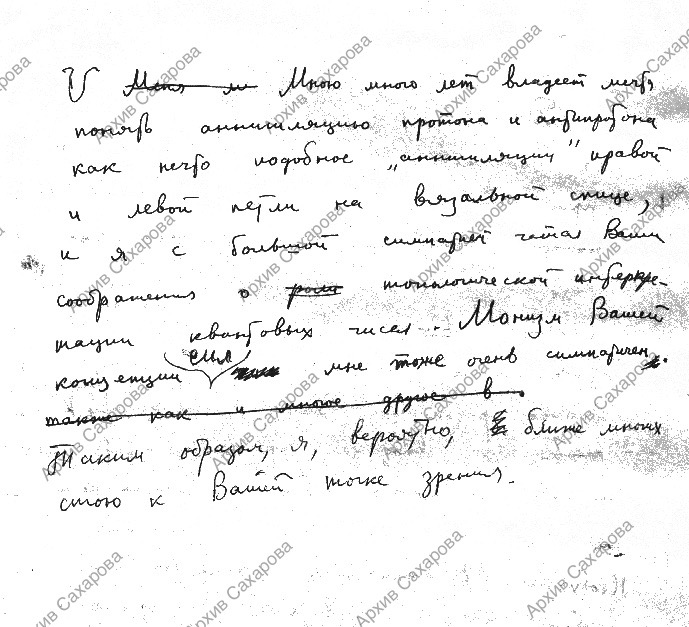 V ~~Меня~~ Мною много лет владеет мечта
понять аннигиляцию протона и антипротона
как нечто подобное „аннигиляции" правой
и левой петли на вязальной спице,
и я с большой симпатией читал Ваши
соображения о ~~роли~~ топологической интерпре-
тации квантовых чисел. Монизм Вашей
концепции сил мне тоже очень симпатичен.
~~также как и многое другое в~~
Таким образом, я, вероятно, ближе многих
стою к Вашей точке зрения.
Архив Сахарова